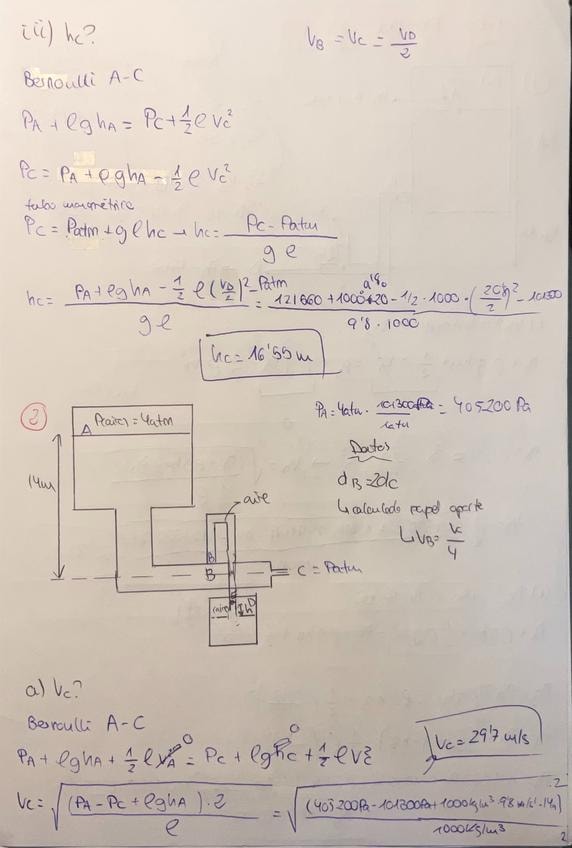 iii) hc?
VB = VC = VD/2
Bernoulli A-C
PA + ρghA = PC + 1/2 ρ VC²
PC = PA + ρghA - 1/2 ρ VC²
tubo manométrico
PC = Patm + gρhc → hc = (PC - Patm)/(gρ)
hc = (PA + ρghA - 1/2 ρ(VD/2)² - Patm)/(gρ) = 121560 + 1000·20 - 1/2 · 1000 · ( /2)² - 101300
9'8
9'8 · 1000
hc = 16'55 m
②
PA = 4atm · 101300Pa/1atm = 405200 Pa
A P(aire) = 4atm
Datos
14m
dB = 2dc
aire
↳ calculado papel aparte
↳ VB = VC/4
B
B
C = Patm
D
h
a) Vc?
Bernoulli A-C
PA + ρghA + 1/2 ρVA² = PC + ρghC + 1/2 ρVC²
0
0
VC = 29'7 m/s
VC = √((PA - PC + ρghA) · 2/ρ) = √((405200Pa - 101300Pa + 1000kg/m³ · 9'8 m/s² · 14m) · 2/1000kg/m³)
2